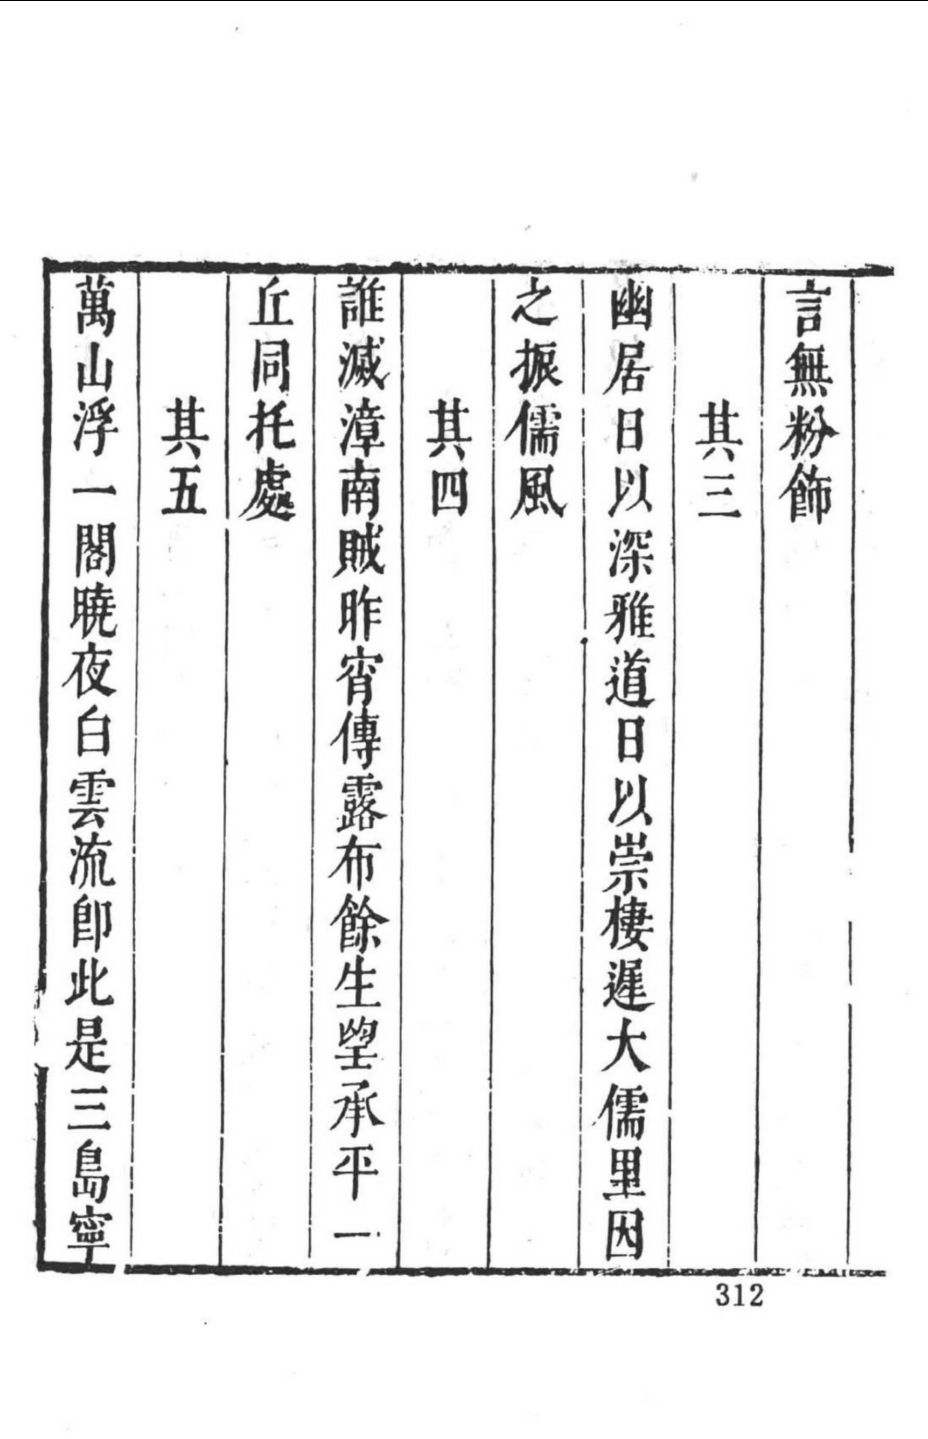 言無粉飾
其三
幽居日以深雅道日以崇棲遲大儒里因
之振儒風
其四
誰滅漳南賊昨宵傳露布餘生望承平一
丘同托處
其五
萬山浮一閣曉夜白雲流卽此是三島寧
312